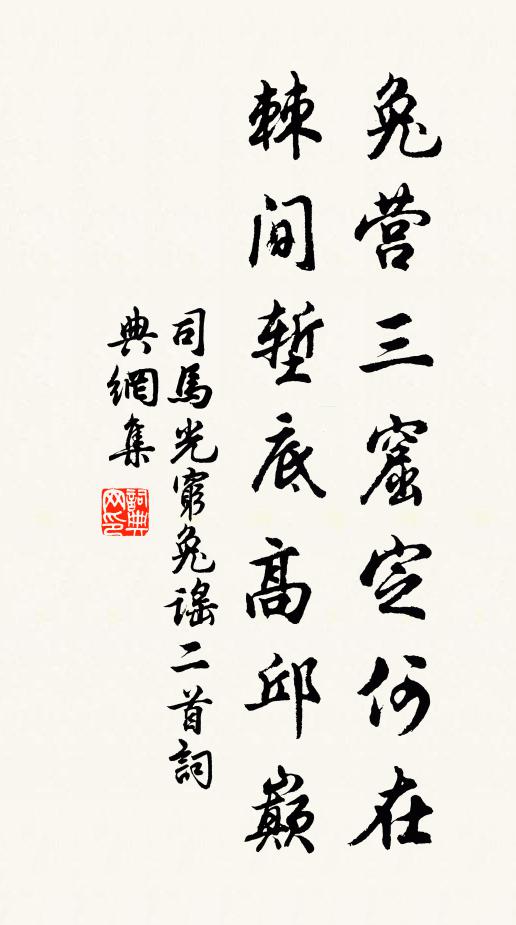 兔营三窟定何在
棘间堑底高邱巅
司馬光窮兔謠二首詞
典網集
詞典
网印